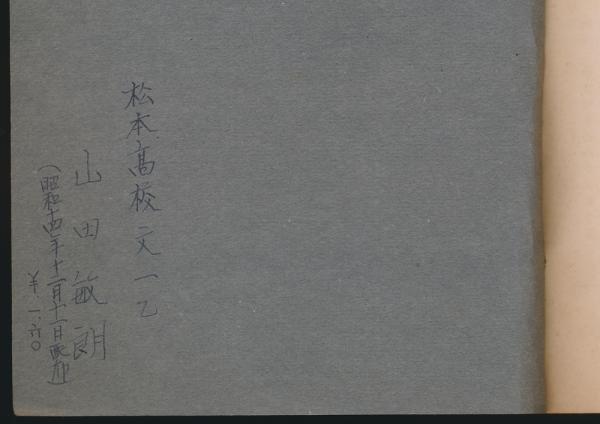 松本高校文一乙
山田敏朗
(昭和十四年十一月十一日
¥一.六〇